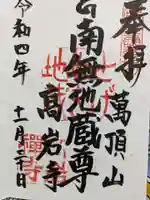 奉拝
萬頂山
南無地蔵尊
高岩寺
令和四年
十一月二十日